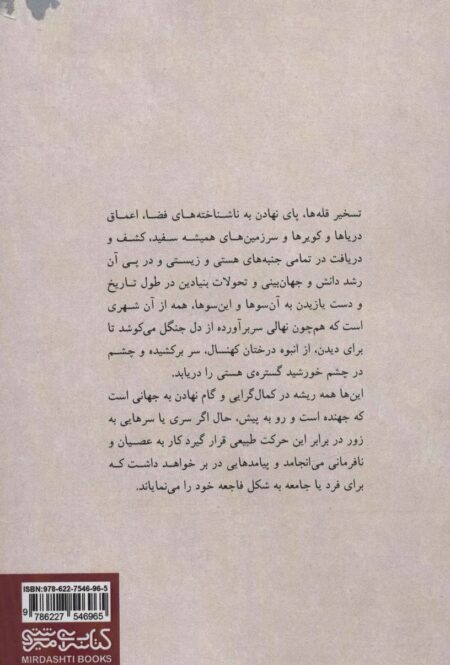 تسخیر قله‌ها، پای نهادن به ناشناخته‌های فضا، اعماق
دریاها و کویرها و سرزمین‌های همیشه سفید، کشف و
دریافت در تمامی جنبه‌های هستی و زیستی و در پی آن
رشد دانش و جهان‌بینی و تحولات بنیادین در طول تاریخ
و دست یازیدن به آن‌سوها و این‌سوها، همه از آن شهری
است که هم‌چون نهالی سربرآورده از دل جنگل می‌کوشد تا
برای دیدن، از انبوه درختان کهنسال، سر برکشیده و چشم
در چشم خورشید گستره‌ی هستی را دریابد.
این‌ها همه ریشه در کمال‌گرایی و گام نهادن به جهانی است
که جهنده است و رو به پیش، حال اگر سری یا سرهایی به
زور در برابر این حرکت طبیعی قرار گیرد کار به عصیان و
نافرمانی می‌انجامد و پیامدهایی در بر خواهد داشت که
برای فرد یا جامعه به شکل فاجعه خود را می‌نمایاند.
ISBN: 978-622-7546-96-5
9 786227 546965
کتابسرای میردشتی
MIRDASHTI BOOKS